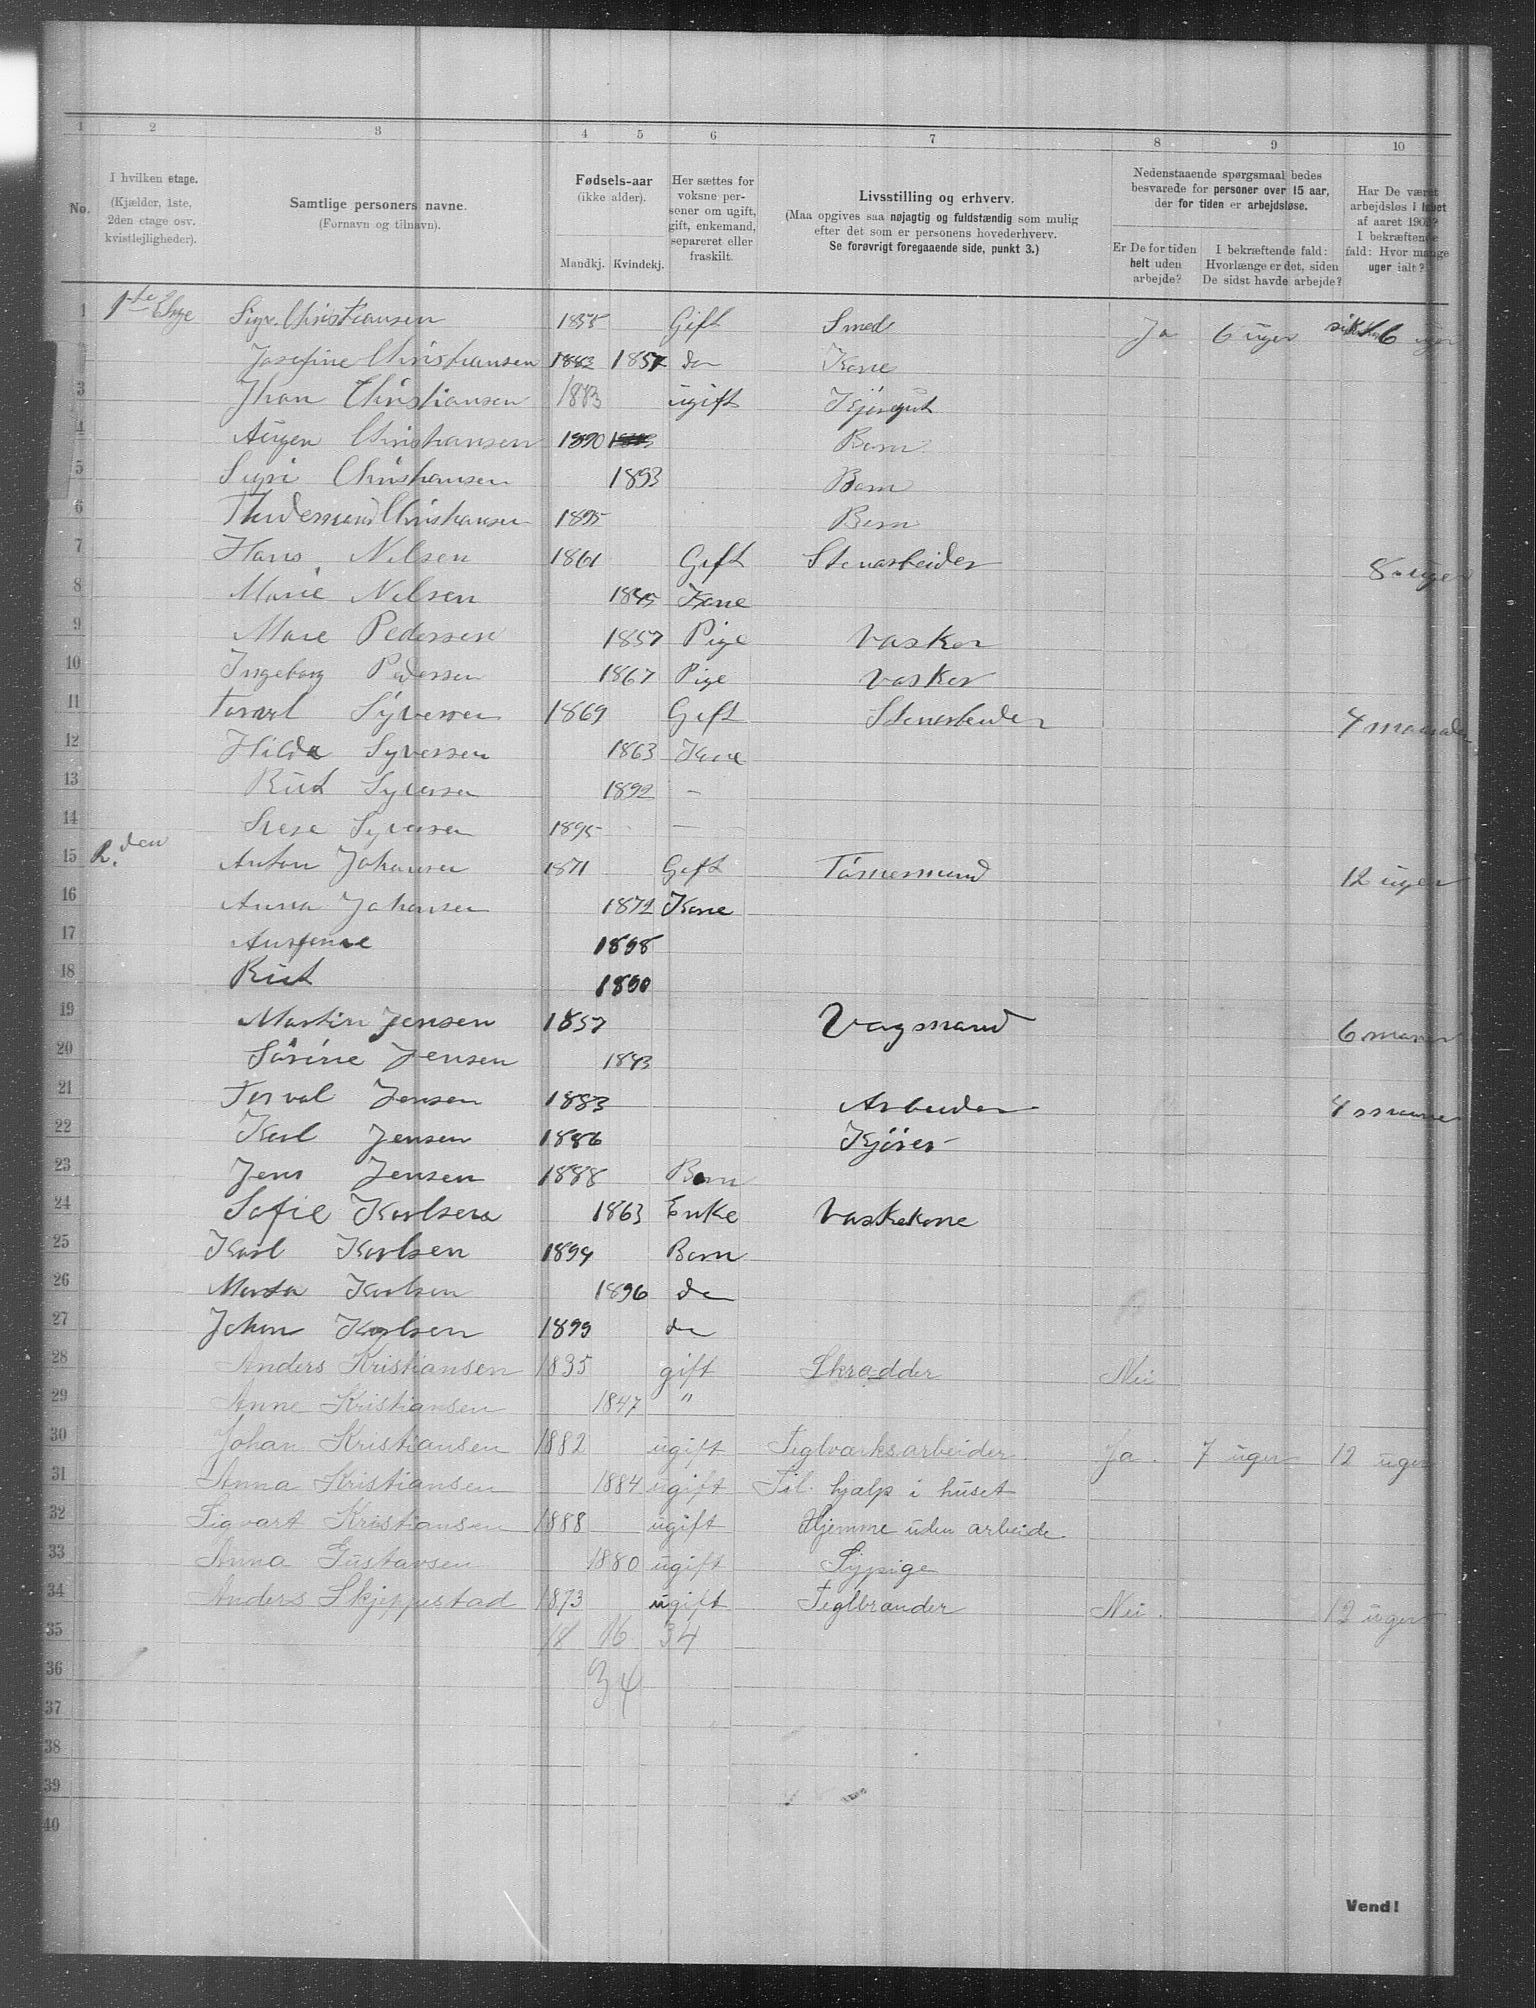 1 2 3 4 5 6 7 8 9 10
No. I hvilken etage. (Kjælder, 1ste, 2den etage osv. kvistlejligheder). Samtlige personers navne. (Fornavn og tilnavn). Fødsels-aar (ikke alder). Mandkj. Kvindekj. Her sættes for voksne personer om ugift, gift, enkemand, separeret eller fraskilt. Livsstilling og erhverv. (Maa opgives saa nøjagtig og fuldstændig som mulig efter det som er personens hovederhverv. Se forøvrigt foregaaende side, punkt 3.) Nedenstaaende spørgsmaal bedes besvarede for personer over 15 aar, der for tiden er arbejdsløse. Er De for tiden helt uden arbejde? I bekræftende fald: Hvorlænge er det, siden De sidst havde arbejde? Har De været arbejdsløs i løbet af aaret 1902? I bekræftende fald: Hvor mange uger ialt?
1 1ste Etage Christiansen Gift Smed Ja 6 uger 6 uger
Josefine Christiansen 1857 do Kone
3 Jhan Christiansen 1883 ugift Kjøregut
4 Christiansen 1890 Barn
5 Sigri Christiansen 1893 Barn
6 Christiansen 1895 Barn
7 Hans Nilsen 1861 Gift Stenarbeider 8 uger
8 Marie Nilsen 1845 Kone
9 Mare Pedersen 1857 Pige Vasker
10 Ingeborg Pedersen 1867 Pige Vasker
11 Syversen 1869 Gift Stenarbeider 4 maaneder
12 Hilda Syversen 1863 Kone
13 Rut Syversen 1892 -
14 Syversen 1895 - -
15 2.den Anton Johansen 1871 Gift Tømesmand 12 uger
16 Anna Johansen 1872 Kone
17 1898
18 Rut 1890
19 Martin Jensen 1857 Vagsmand 6 maner
20 Sørine Jensen 1843
21 Torval Jensen 1883 Arbeider 4 maane
22 Karl Jensen 1886 Kjører
23 Jens Jensen 1888 Barn
24 Sofie Karlsen 1863 Enke Vaskekone
25 Karl Karlsen 1894 Barn
26 Marta Karlsen 1896 do
27 Johan Karlsen 1899 do
28 Anders Kristiansen 1835 gift Skrædder Nei
29 Anne Kristiansen 1847 "
30 Johan Kristiansen 1882 ugift Teglværksarbeider Ja. 7 uger 12 uger
31 Anna Kristiansen 1884 ugift Til hjælp i huset
32 Sigvart Kristiansen 1888 ugift Hjemme uden arbeide
33 Anna Gustavsen 1880 ugift Sypige
34 Anders Skjeppestad 1873 ugift Teglbrænder Nei. 12 uger
35 18 16 34
36 34
37
38
39
40
Vend!